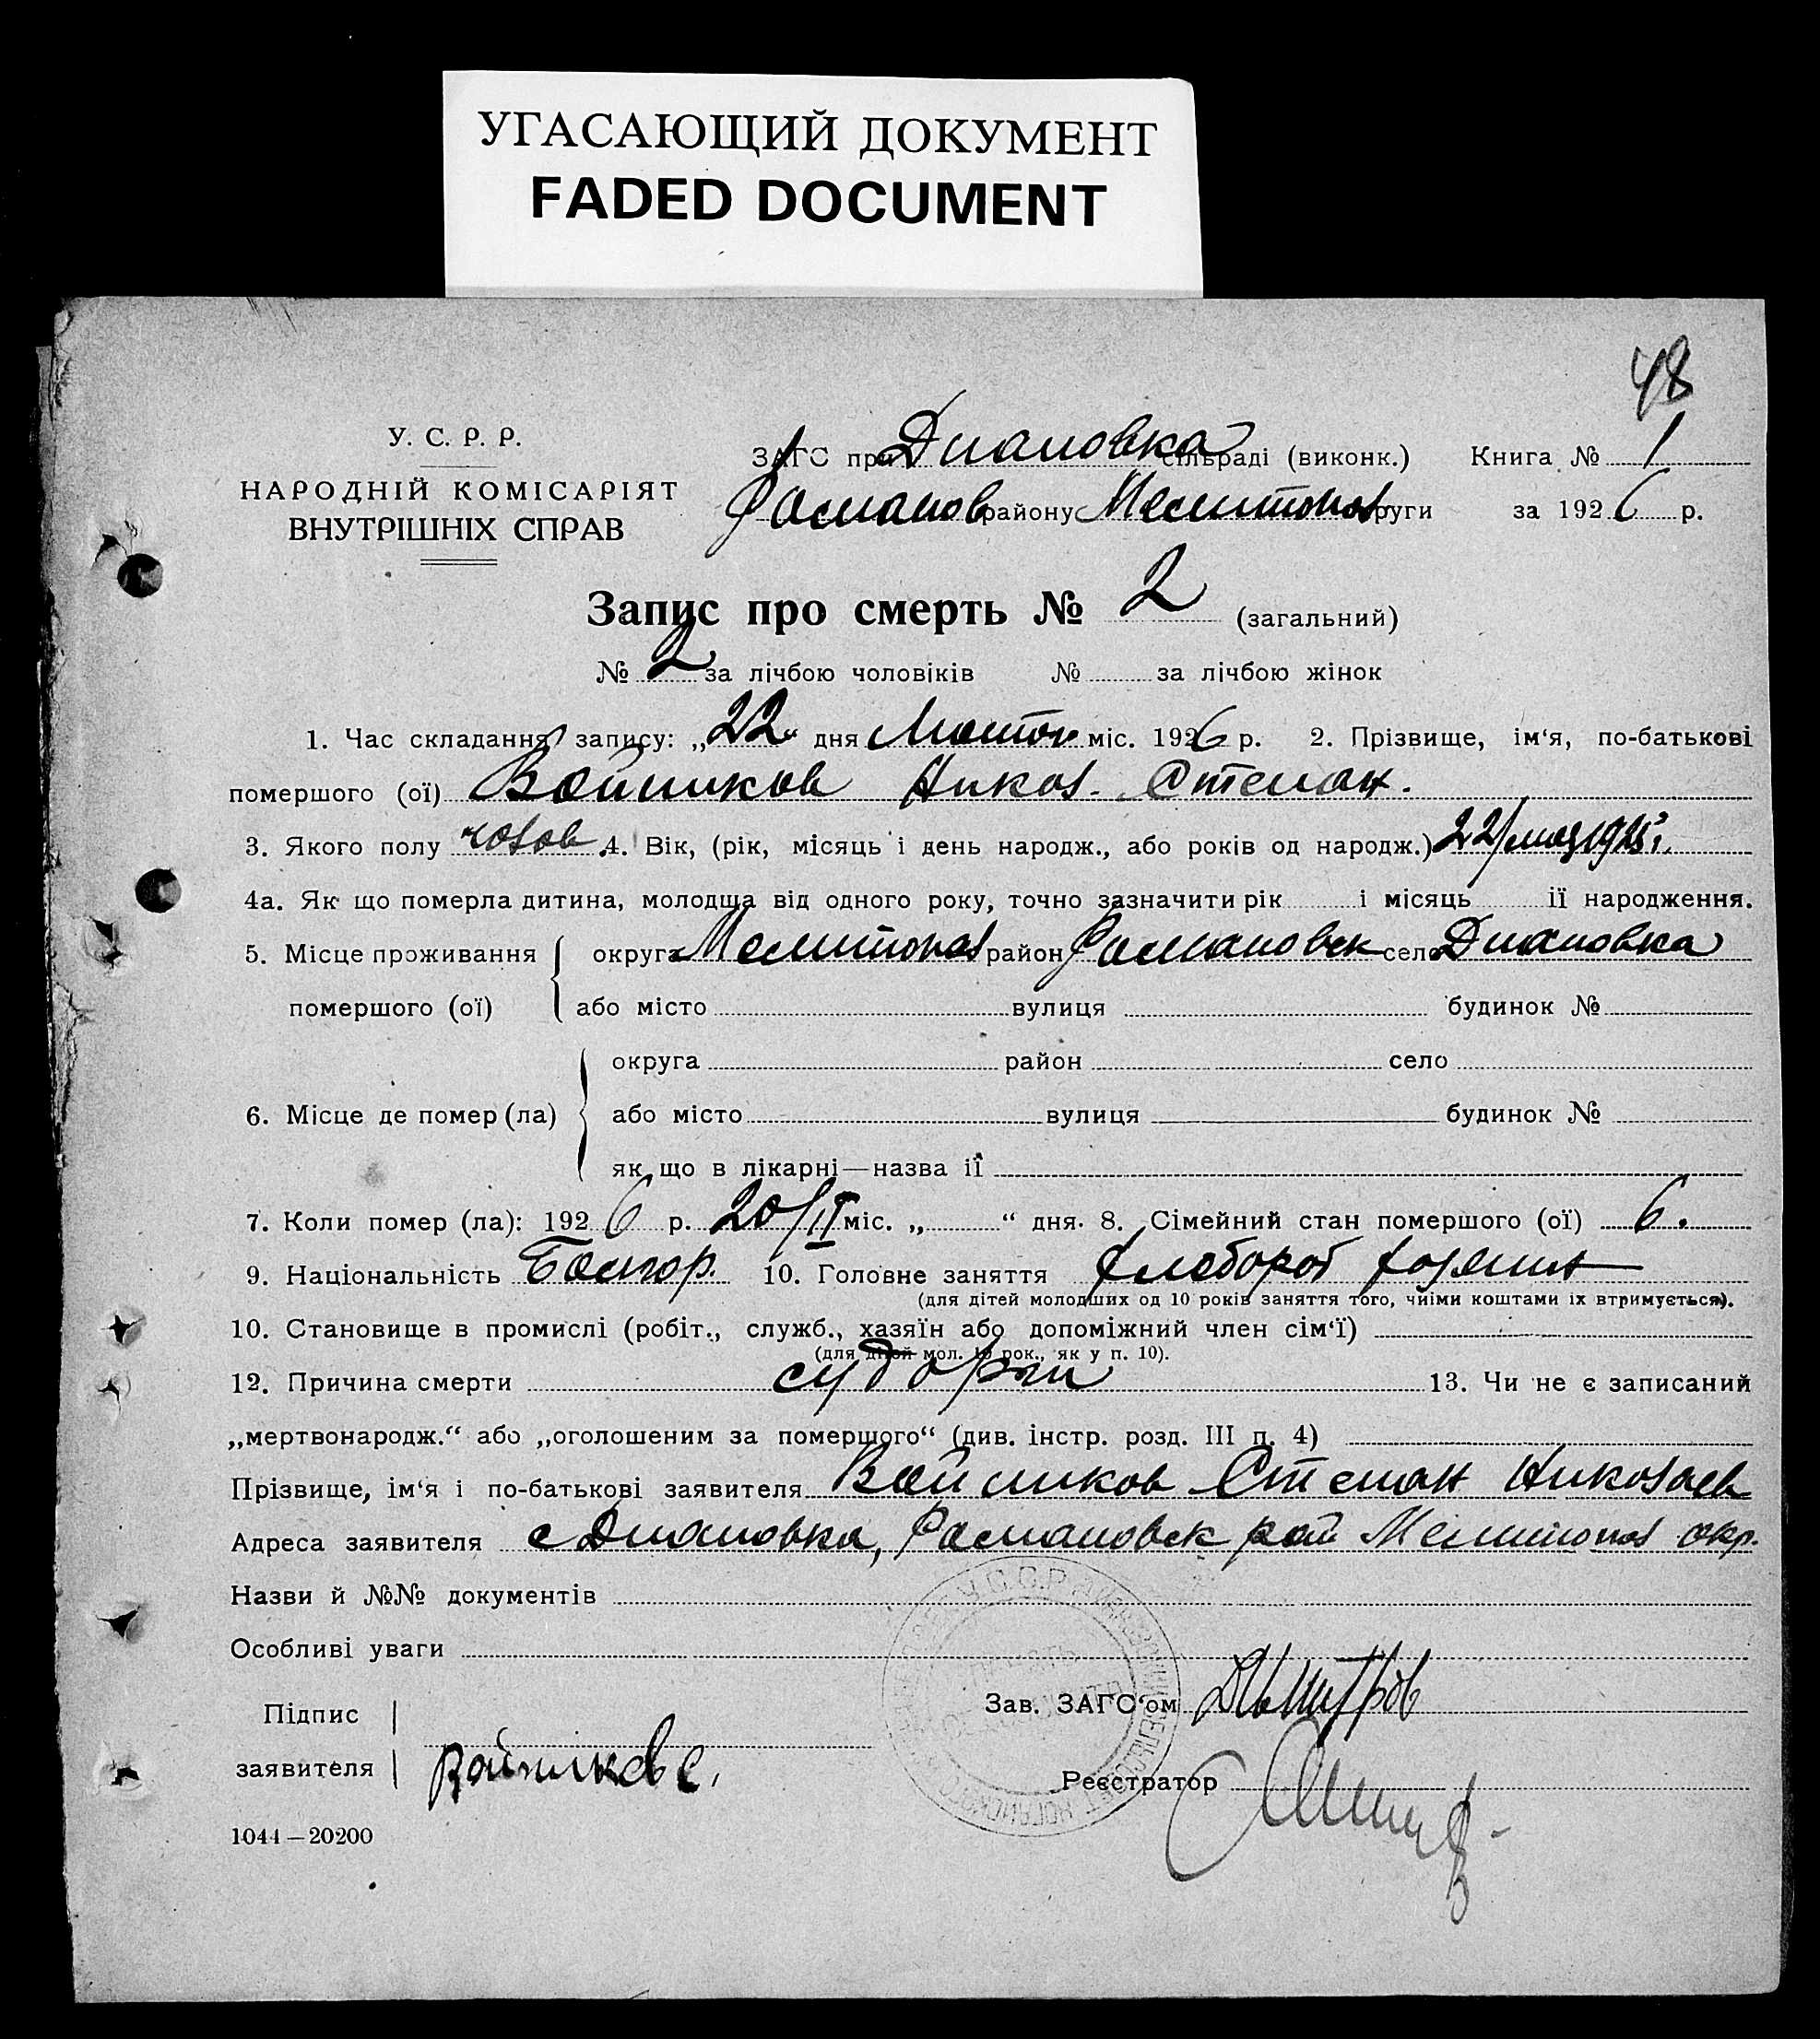 УГАСАЮЩИЙ ДОКУМЕНТ
FADED DOCUMENT
48
У. С. Р. Р.
НАРОДНІЙ КОМІСАРІЯТ
ВНУТРІШНІХ СПРАВ
ЗАГС при Диановка сільраді (виконк.) Книга № 1
Романов району Мелитопол округи за 1926 р.
Запис про смерть № 2 (загальний)
№ 2 за лічбою чоловіків № за лічбою жінок
1. Час складання запису: „22“ дня міс. 1926 р. 2. Прізвище, ім‘я, по-батькові
помершого (ої) Войников Никол. Степан.
3. Якого полу чолов. 4. Вік, (рік, місяць і день народж., або років од народж.) 22/мая 1925 г.
4а. Як що померла дитина, молодща від одного року, точно зазначити рік і місяць її народження.
5. Місце проживання округа Мелитопол район Романовск село Диановка
помершого (ої) або місто вулиця будинок №
округа район село
6. Місце де помер (ла) або місто вулиця будинок №
як що в лікарні—назва її
7. Коли помер (ла): 1926 р. 20/II міс. „ “ дня. 8. Сімейний стан помершого (ої) 6.
9. Національність Болгар. 10. Головне заняття хлебороб хозяин
(для дітей молодших од 10 років заняття того, чиїми коштами їх втримується).
10. Становище в промислі (робіт., служб., хазяїн або допоміжний член сім‘ї)
(для дітей мол. 10 рок., як у п. 10).
12. Причина смерти судороги 13. Чи не є записаний
„мертвонародж.“ або „оголошеним за помершого“ (див. інстр. розд. III п. 4)
Прізвище, ім‘я і по-батькові заявителя Войников Степан Николаев
Адреса заявителя с Диановка, Романовск рай Мелитопол окр.
Назви й №№ документів
Особливі уваги
Підпис
заявителя Войников С.
Зав. ЗАГС‘ом Дымитров
Реєстратор
1044—20200